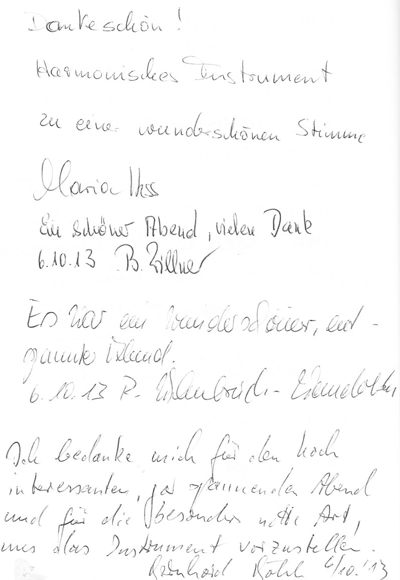 Dankeschön!
Harmonisches Instrument
zu einer wunderschönen Stimme
Maria
Ein schöner Abend, vielen Dank
6.10.13 B. Zillner
Es war ein wunderschöner, ent-
spannter Abend.
6.10.13 R.
Ich bedanke mich für den hoch
interessanten, ja spannenden Abend
und für die besonders nette Art,
uns das Instrument vorzustellen.
Reinhard 6/10.'13